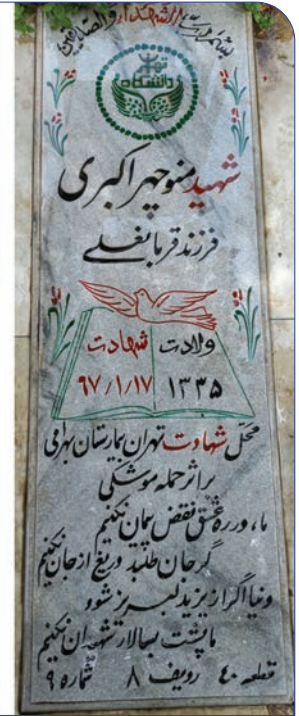 بسم رب الشهداء والصدیقین
دانشگاه تهران
شهید منوچهر اکبری
فرزند قربانعلی
ولادت شهادت
۱۳۳۵ ۶۷/۱/۱۷
محل شهادت تهران بیمارستان بهرامی
بر اثر حمله موشکی
ما، در ره عشق نقض پیمان نکنیم
گر جان طلبد دریغ از جان نکنیم
دنیا اگر از یزید لبریز شود
ما پشت بسالار شهیدان نکنیم
قطعه ۴۰ ردیف ۸ شماره ۹